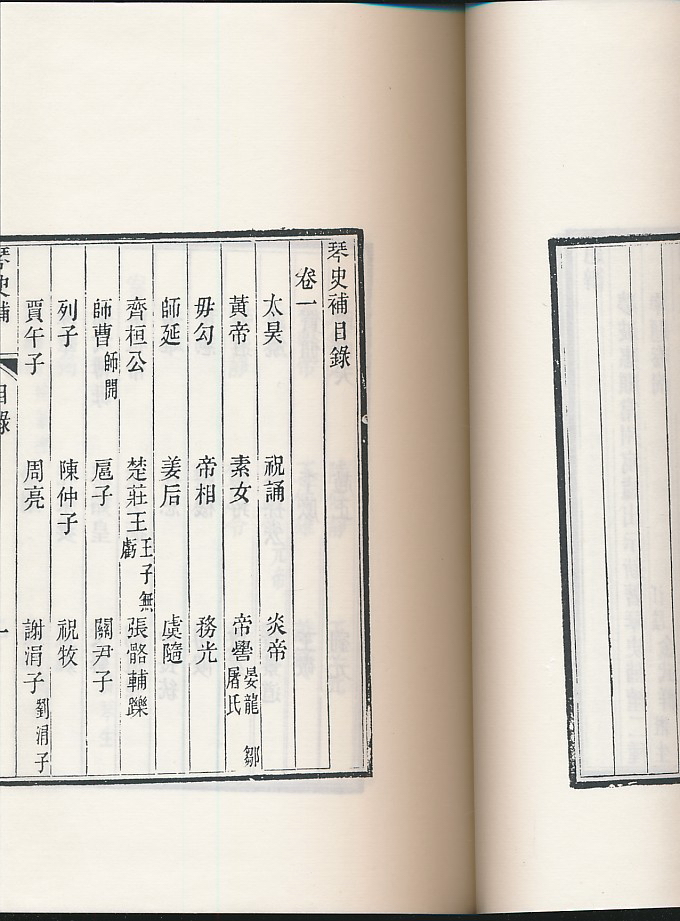 琴史補目錄
卷一
太昊 祝誦 炎帝
黃帝 素女 帝嚳 晏龍 鄒屠氏
毋勾 帝相 務光
師延 姜后 虞隨
齊桓公 楚莊王 王子無虧 張骼輔躒
師曹 師開 扈子 關尹子
列子 陳仲子 祝牧
賈午子 周亮 謝涓子 劉涓子
琴史補 目錄 一